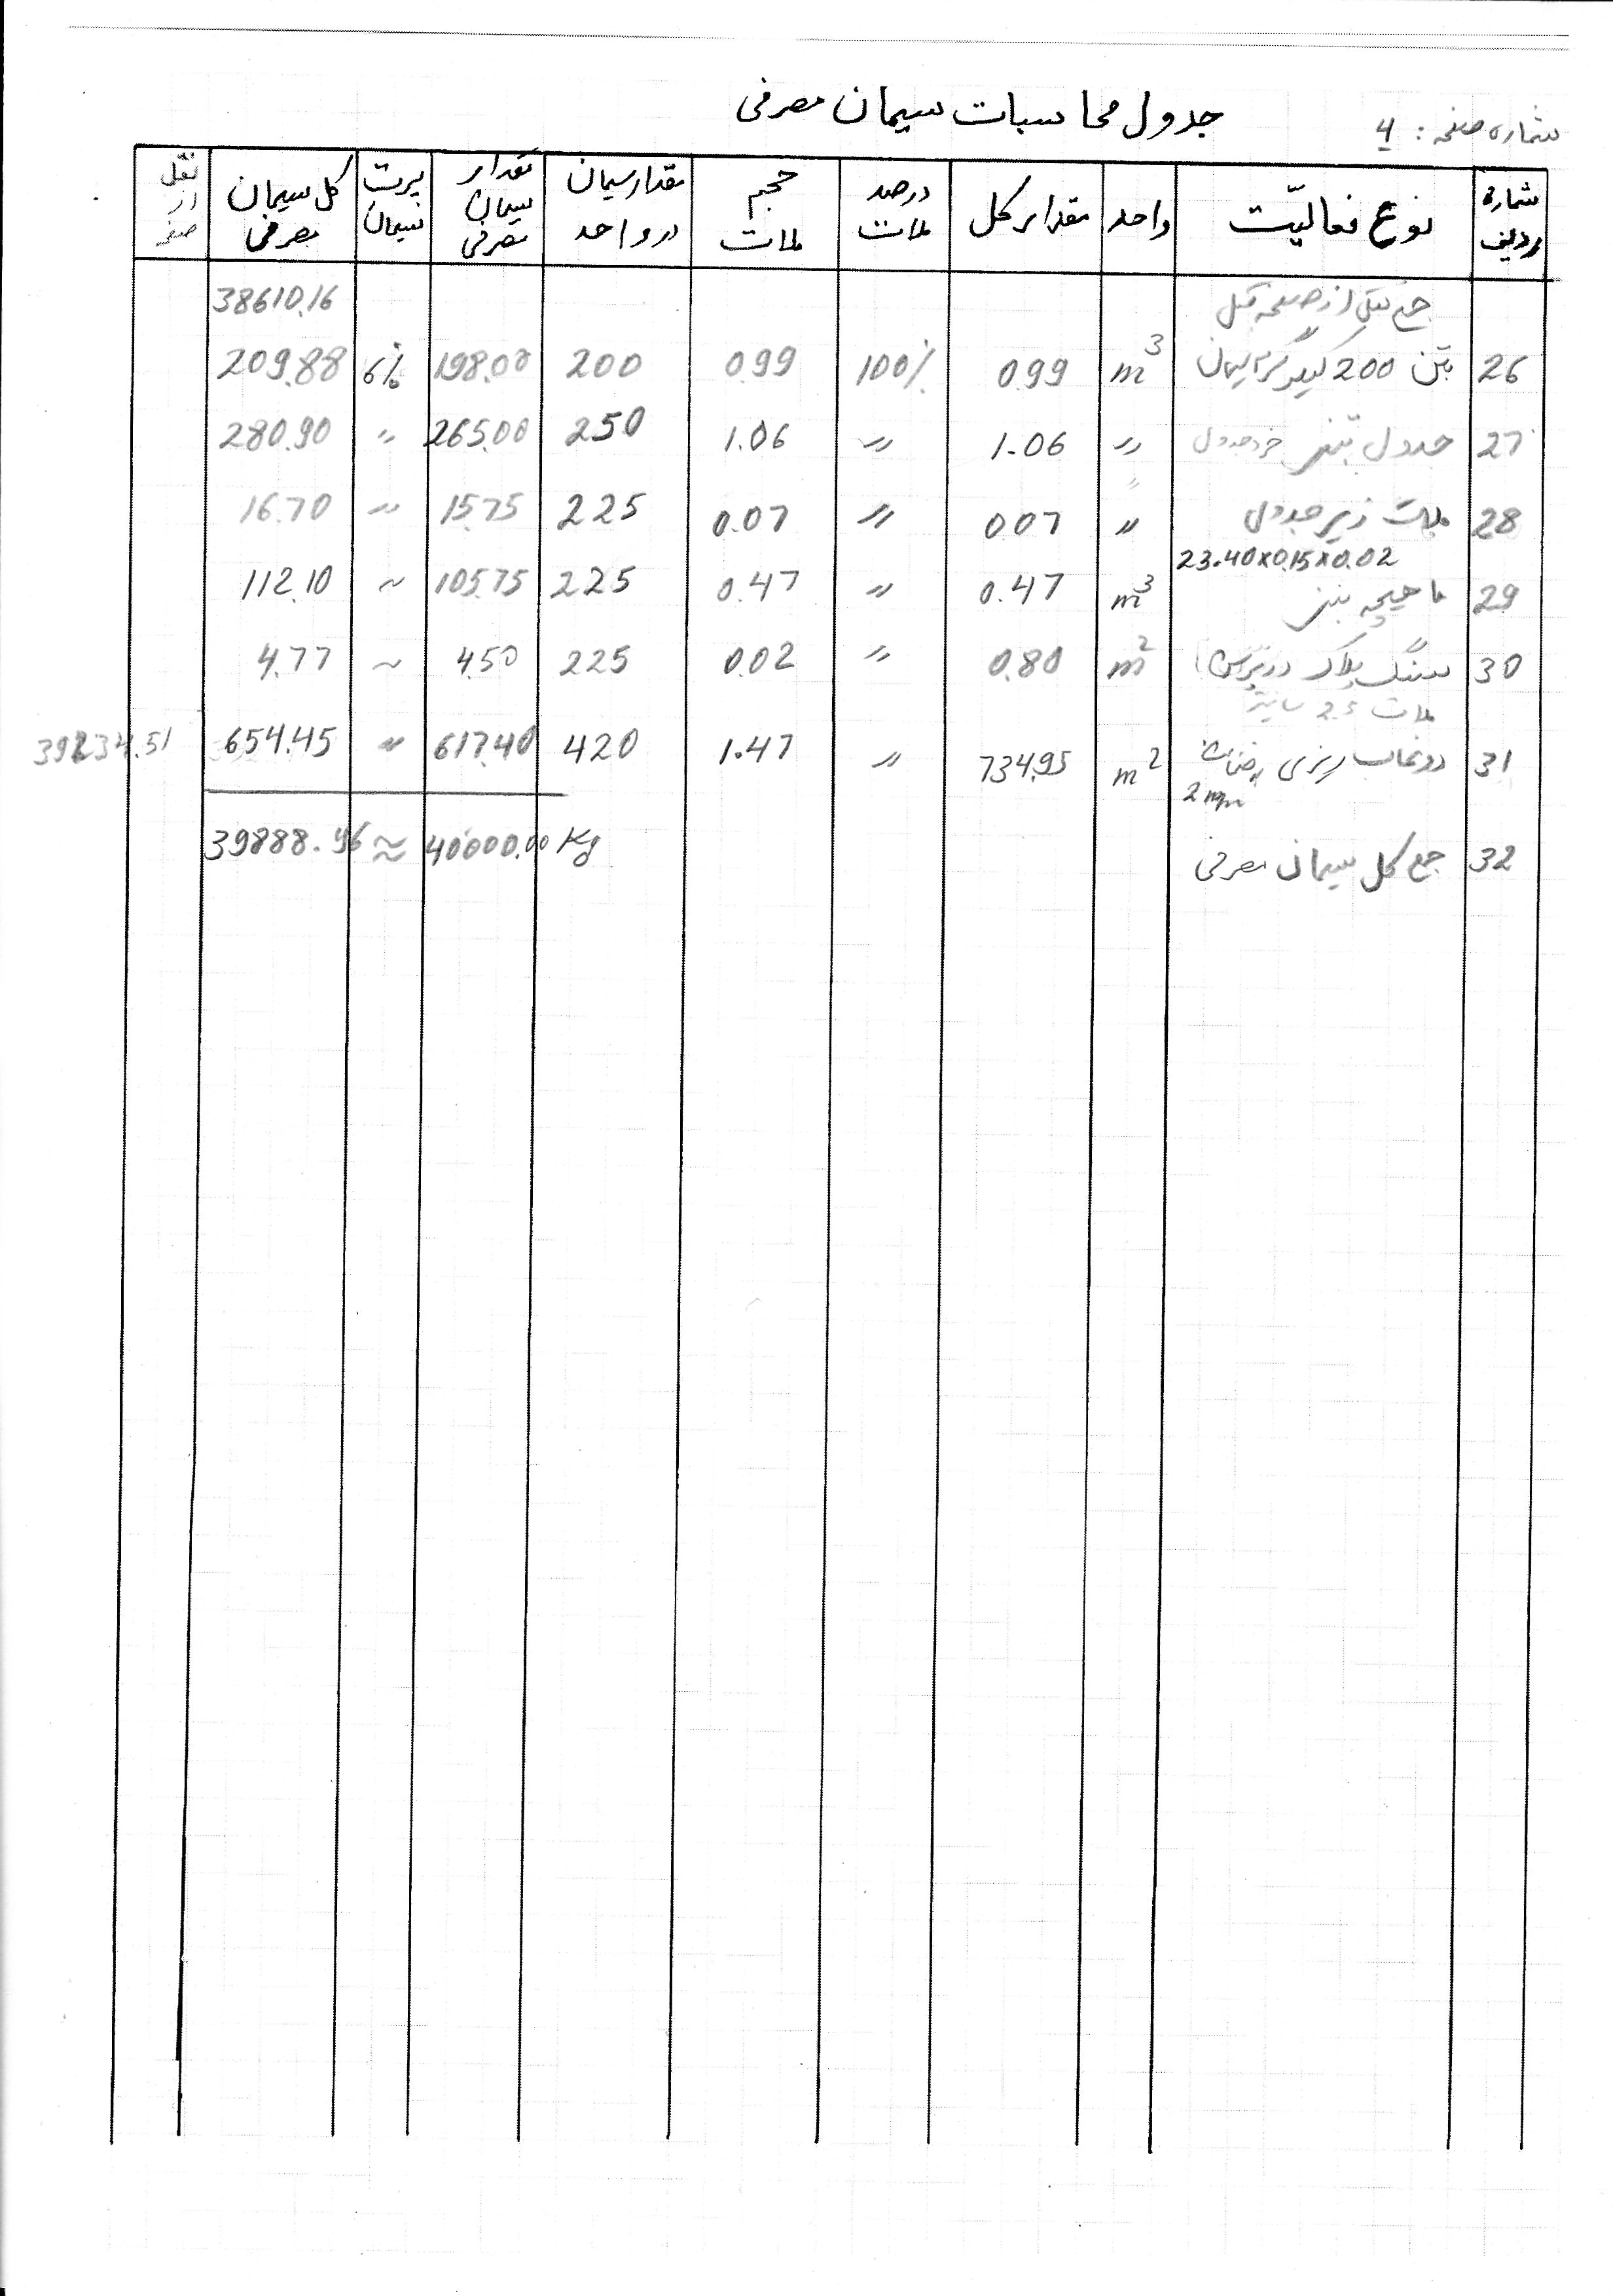 جدول محاسبات سیمان مصرفی
شماره صفحه : 4
شماره ردیف | نوع فعالیّت | واحد | مقدار کل | درصد ملات | حجم ملات | مقدار سیمان در واحد | مقدار سیمان مصرفی | پرت سیمان | کل سیمان مصرفی | نقل از صفحه
جمع نقل از صفحه قبل 38610.16
26 بتن 200 کیلوگرم سیمان m³ 0.99 100% 0.99 200 198.00 6% 209.88
27 جدول بتنی " 1.06 " 1.06 250 265.00 " 280.90
28 ملات زیر جدول " 0.07 " 0.07 225 15.75 " 16.70
23.40x0.15x0.02
29 ماهیچه بتنی m³ 0.47 " 0.47 225 105.75 ~ 112.10
30 سنگ پلاک m² 0.80 " 0.02 225 4.50 ~ 4.77
ملات 2.5
31 m² 734.95 " 1.47 420 617.40 " 654.45 39234.51
2 mm
32 جمع کل سیمان مصرفی 39888.96 ≈ 40000.00 Kg